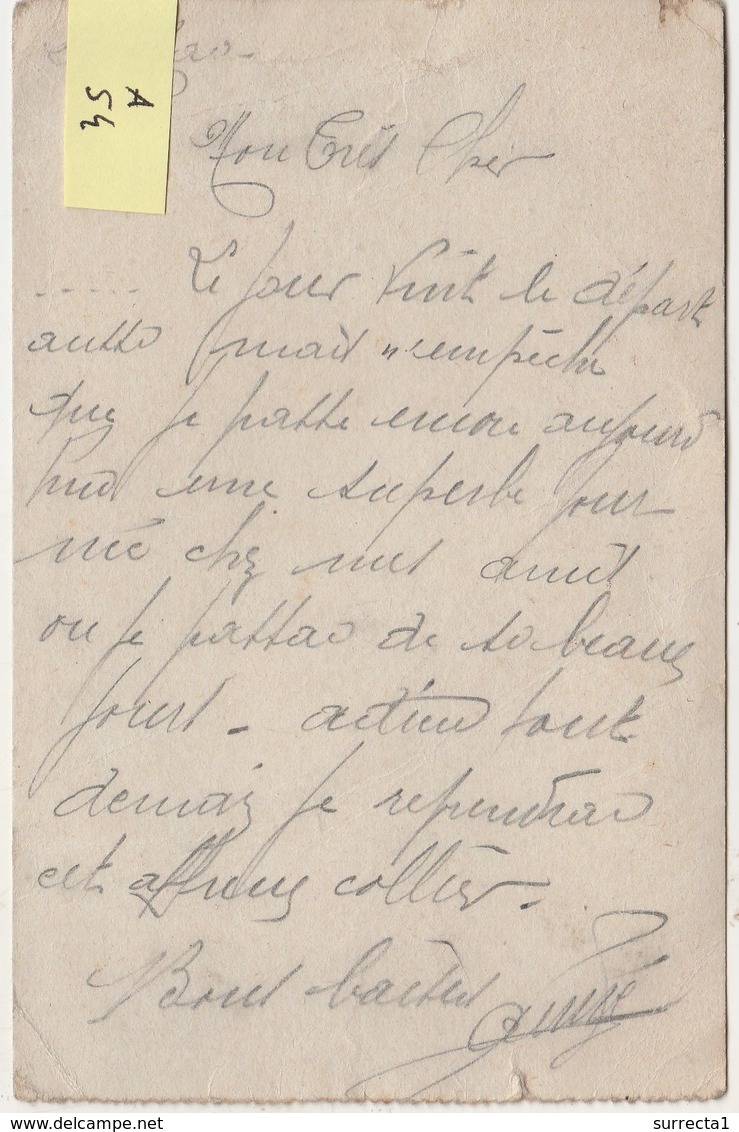 A
54
Mon Très Cher
Le jour vint le départ
aussi mais n'empêche
que je passe encore aujourd
hui une superbe jour
née chez mes amis
ou je passai de so beaux
jours - adieu tout
demain je reprendrai
cet affreux collier.
Bons baisers
Aimé
delcampe.net
surrecta1